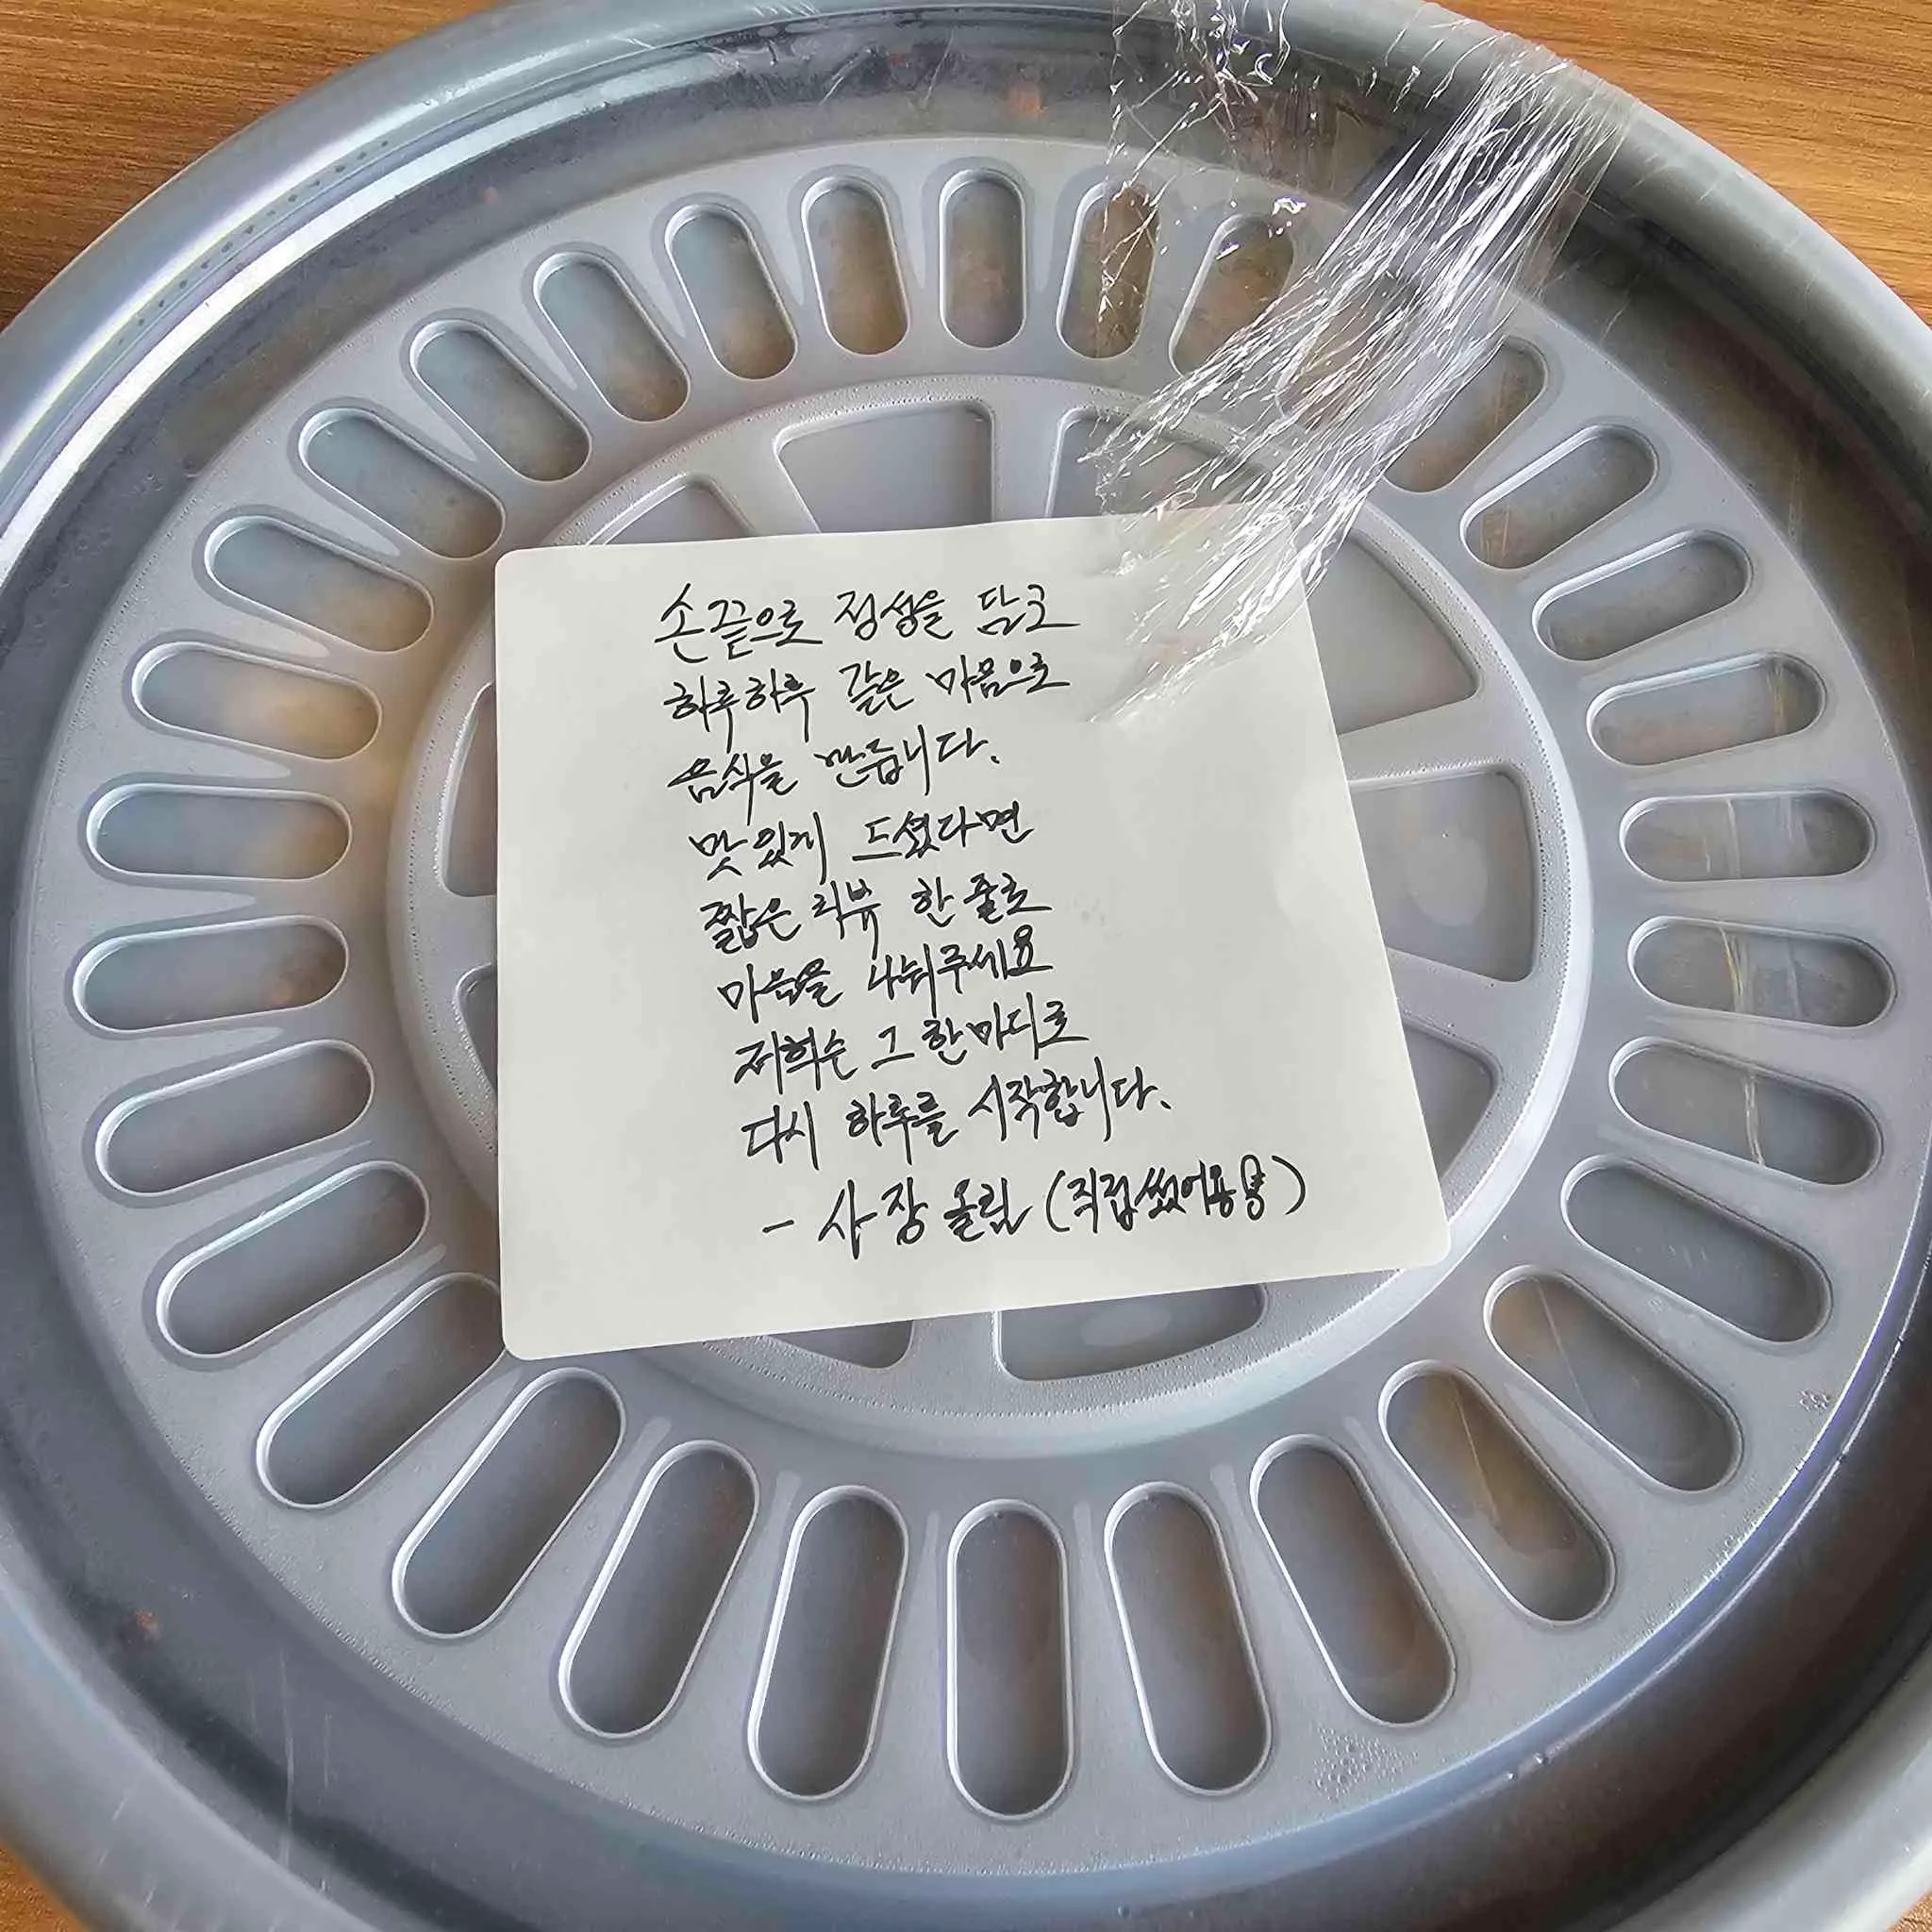 손끝으로 정성을 담고
하루하루 같은 마음으로
음식을 만듭니다.
맛있게 드셨다면
짧은 리뷰 한 줄로
마음을 나눠주세요
저희는 그 한마디로
다시 하루를 시작합니다.
- 사장 올림 (직접 썼어용)